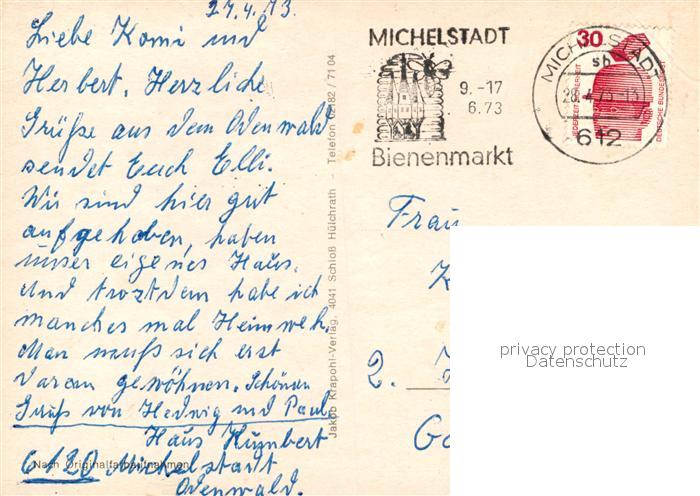 27.4.73
Liebe Komi und
Herbert, Herzliche
Grüße aus dem Odenwald
sendet Euch Elli.
Wir sind hier gut
aufgehoben, haben
unser eigenes Haus.
Und troztdem habe ich
manches mal Heimweh.
Man muß sich erst
daran gewöhnen. Schönen
Gruß von Hedwig und Paul
Haus Humbert
6120 Michelstadt
Odenwald.
Nach Originalfarbaufnahmen
Jakob Krapohl-Verlag, 4041 Schloß Hülchrath - Telefon 02182 / 71 04
MICHELSTADT
9.-17
6.73
Bienenmarkt
MICHELSTADT
sb
28.4.73-13
612
30
JEDERZEIT SICHERHEIT
DEUTSCHE BUNDESPOST
Frau
K
2.
privacy protection
Datenschutz